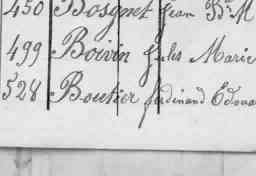 450 Bosquet Jean Bte M
499 Boivin Jules Marie
528 Boutier Ferdinand Edoua